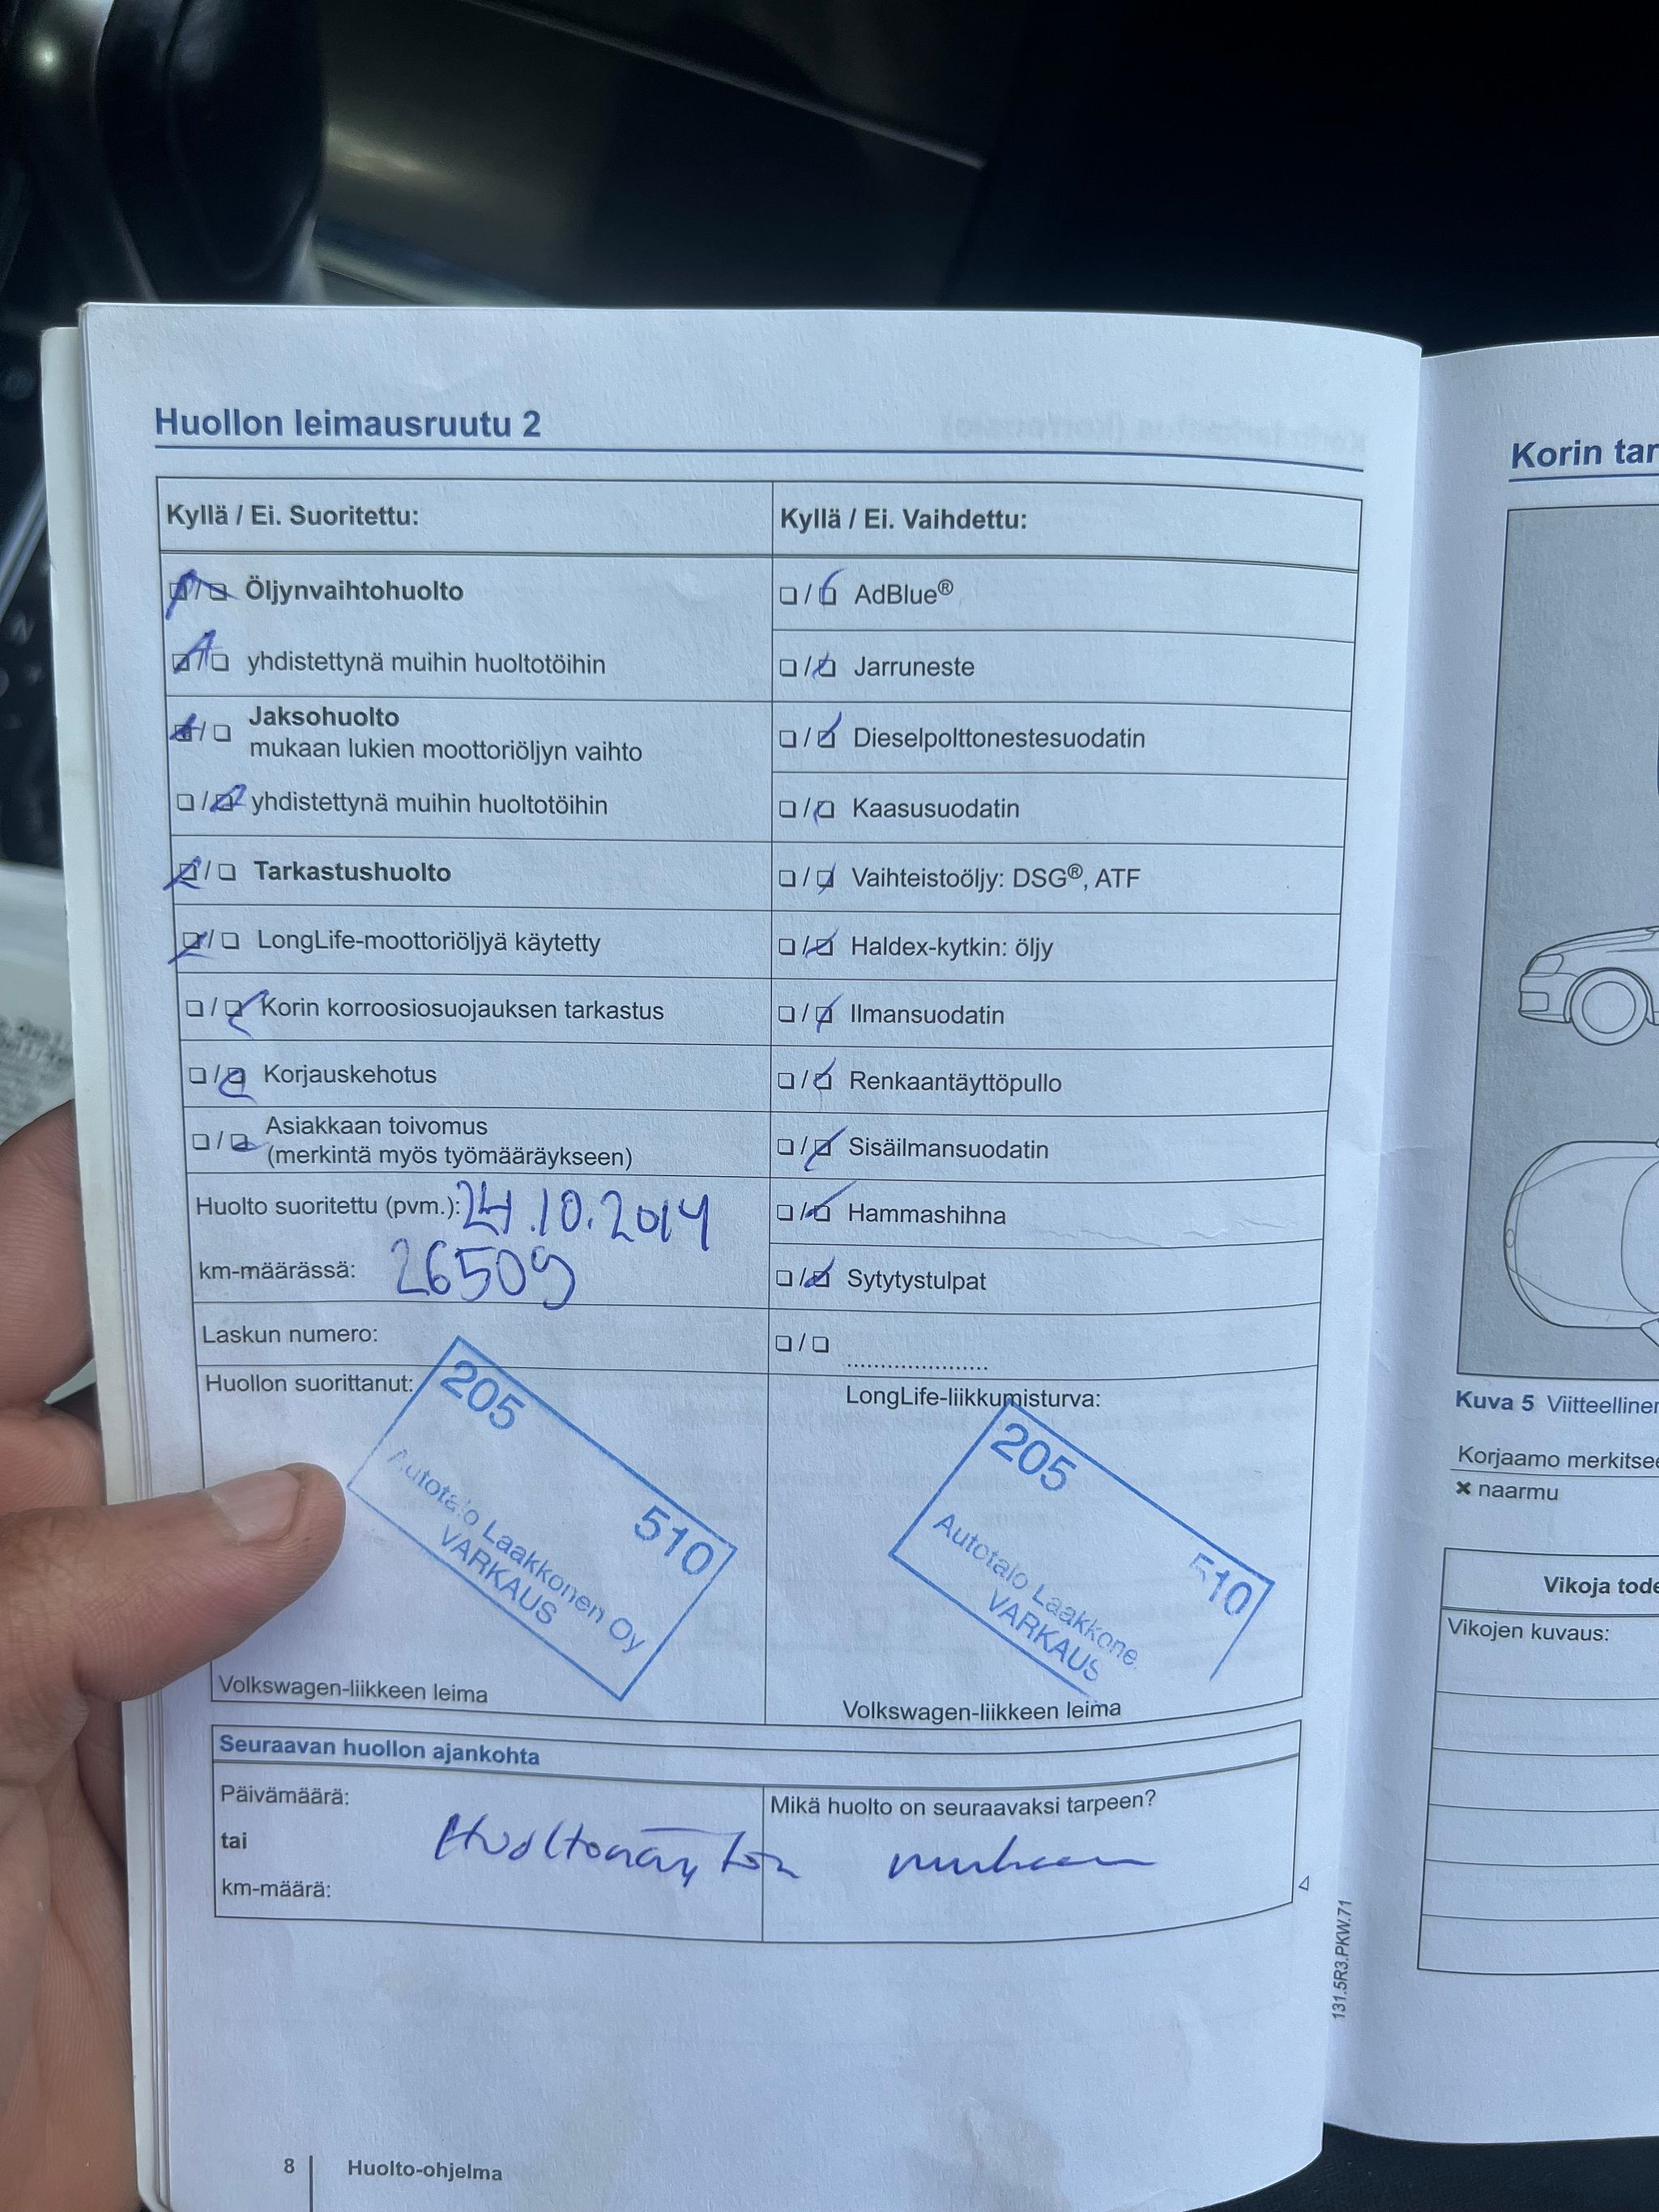 Huollon leimausruutu 2
Kyllä / Ei. Suoritettu:
Öljynvaihtohuolto
yhdistettynä muihin huoltotöihin
Jaksohuolto
mukaan lukien moottoriöljyn vaihto
yhdistettynä muihin huoltotöihin
Tarkastushuolto
LongLife-moottoriöljyä käytetty
Korin korroosiosuojauksen tarkastus
Korjauskehotus
Asiakkaan toivomus
(merkintä myös työmääräykseen)
Huolto suoritettu (pvm.): 24.10.2014
km-määrässä: 26509
Laskun numero:
Huollon suorittanut:
205
510
Autotalo Laakkonen Oy
VARKAUS
Volkswagen-liikkeen leima
Kyllä / Ei. Vaihdettu:
AdBlue®
Jarruneste
Dieselpolttonestesuodatin
Kaasusuodatin
Vaihteistoöljy: DSG®, ATF
Haldex-kytkin: öljy
Ilmansuodatin
Renkaantäyttöpullo
Sisäilmansuodatin
Hammashihna
Sytytystulpat
.....................
LongLife-liikkumisturva:
205
510
Autotalo Laakkone
VARKAUS
Volkswagen-liikkeen leima
Seuraavan huollon ajankohta
Päivämäärä:
tai
km-määrä:
Mikä huolto on seuraavaksi tarpeen?
Huoltonäytön mukaan
131.5R3.PKW.71
8 Huolto-ohjelma
Korin tar
Kuva 5 Viitteelliner
Korjaamo merkitsee
× naarmu
Vikoja tode
Vikojen kuvaus: